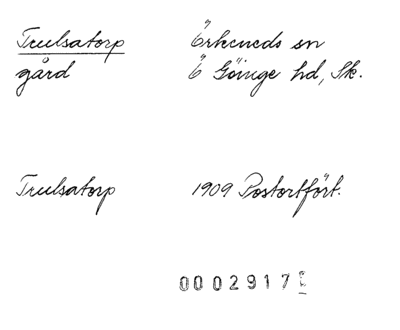 Trulsatorp Örkeneds sn
gård Ö Göinge hd, Sk.
Trulsatorp 1909 Postortfört.
0002917